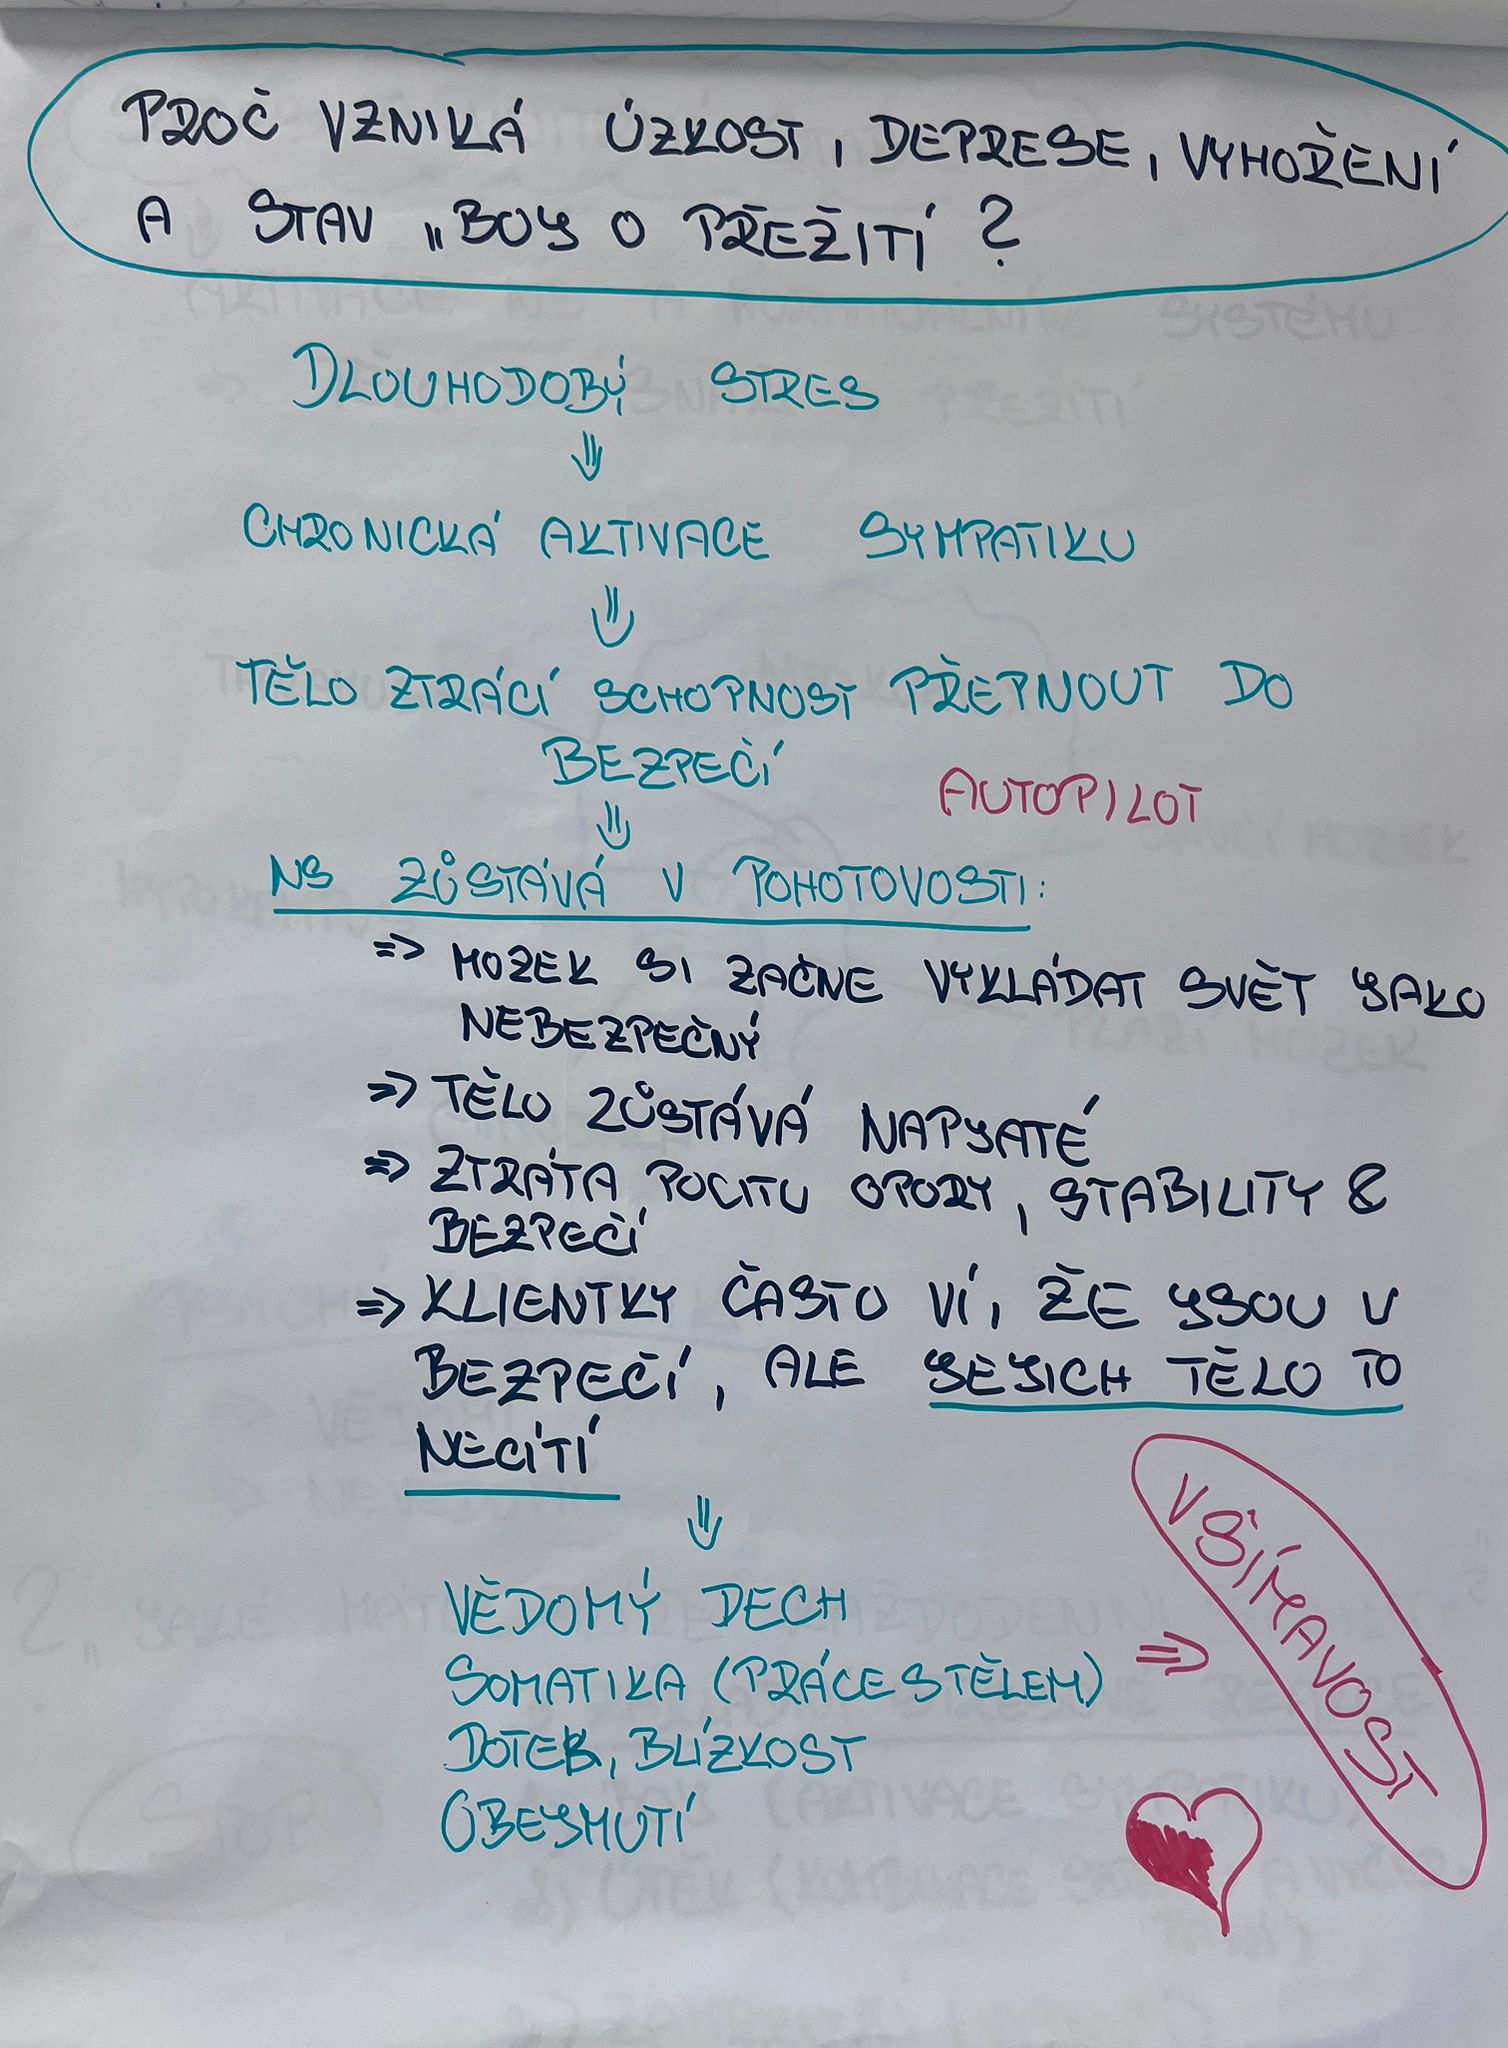 PROČ VZNIKÁ ÚZKOST, DEPRESE, VYHOŘENÍ
A STAV „BOJ O PŘEŽITÍ?
DLOUHODOBÝ STRES
⇓
CHRONICKÁ AKTIVACE SYMPATIKU
⇓
TĚLO ZTRÁCÍ SCHOPNOST PŘEPNOUT DO
BEZPEČÍ
AUTOPILOT
⇓
NS ZŮSTÁVÁ V POHOTOVOSTI:
⇒ MOZEK SI ZAČNE VYKLÁDAT SVĚT JAKO
NEBEZPEČNÝ
⇒ TĚLO ZŮSTÁVÁ NAPJATÉ
⇒ ZTRÁTA POCITU OPORY, STABILITY &
BEZPEČÍ
⇒ KLIENTKY ČASTO VÍ, ŽE JSOU V
BEZPEČÍ, ALE JEJICH TĚLO TO
NECÍTÍ
⇓
VĚDOMÝ DECH
SOMATIKA (PRÁCE S TĚLEM) ⇒
DOTEK, BLÍZKOST
OBEJMUTÍ
VŠÍMAVOST